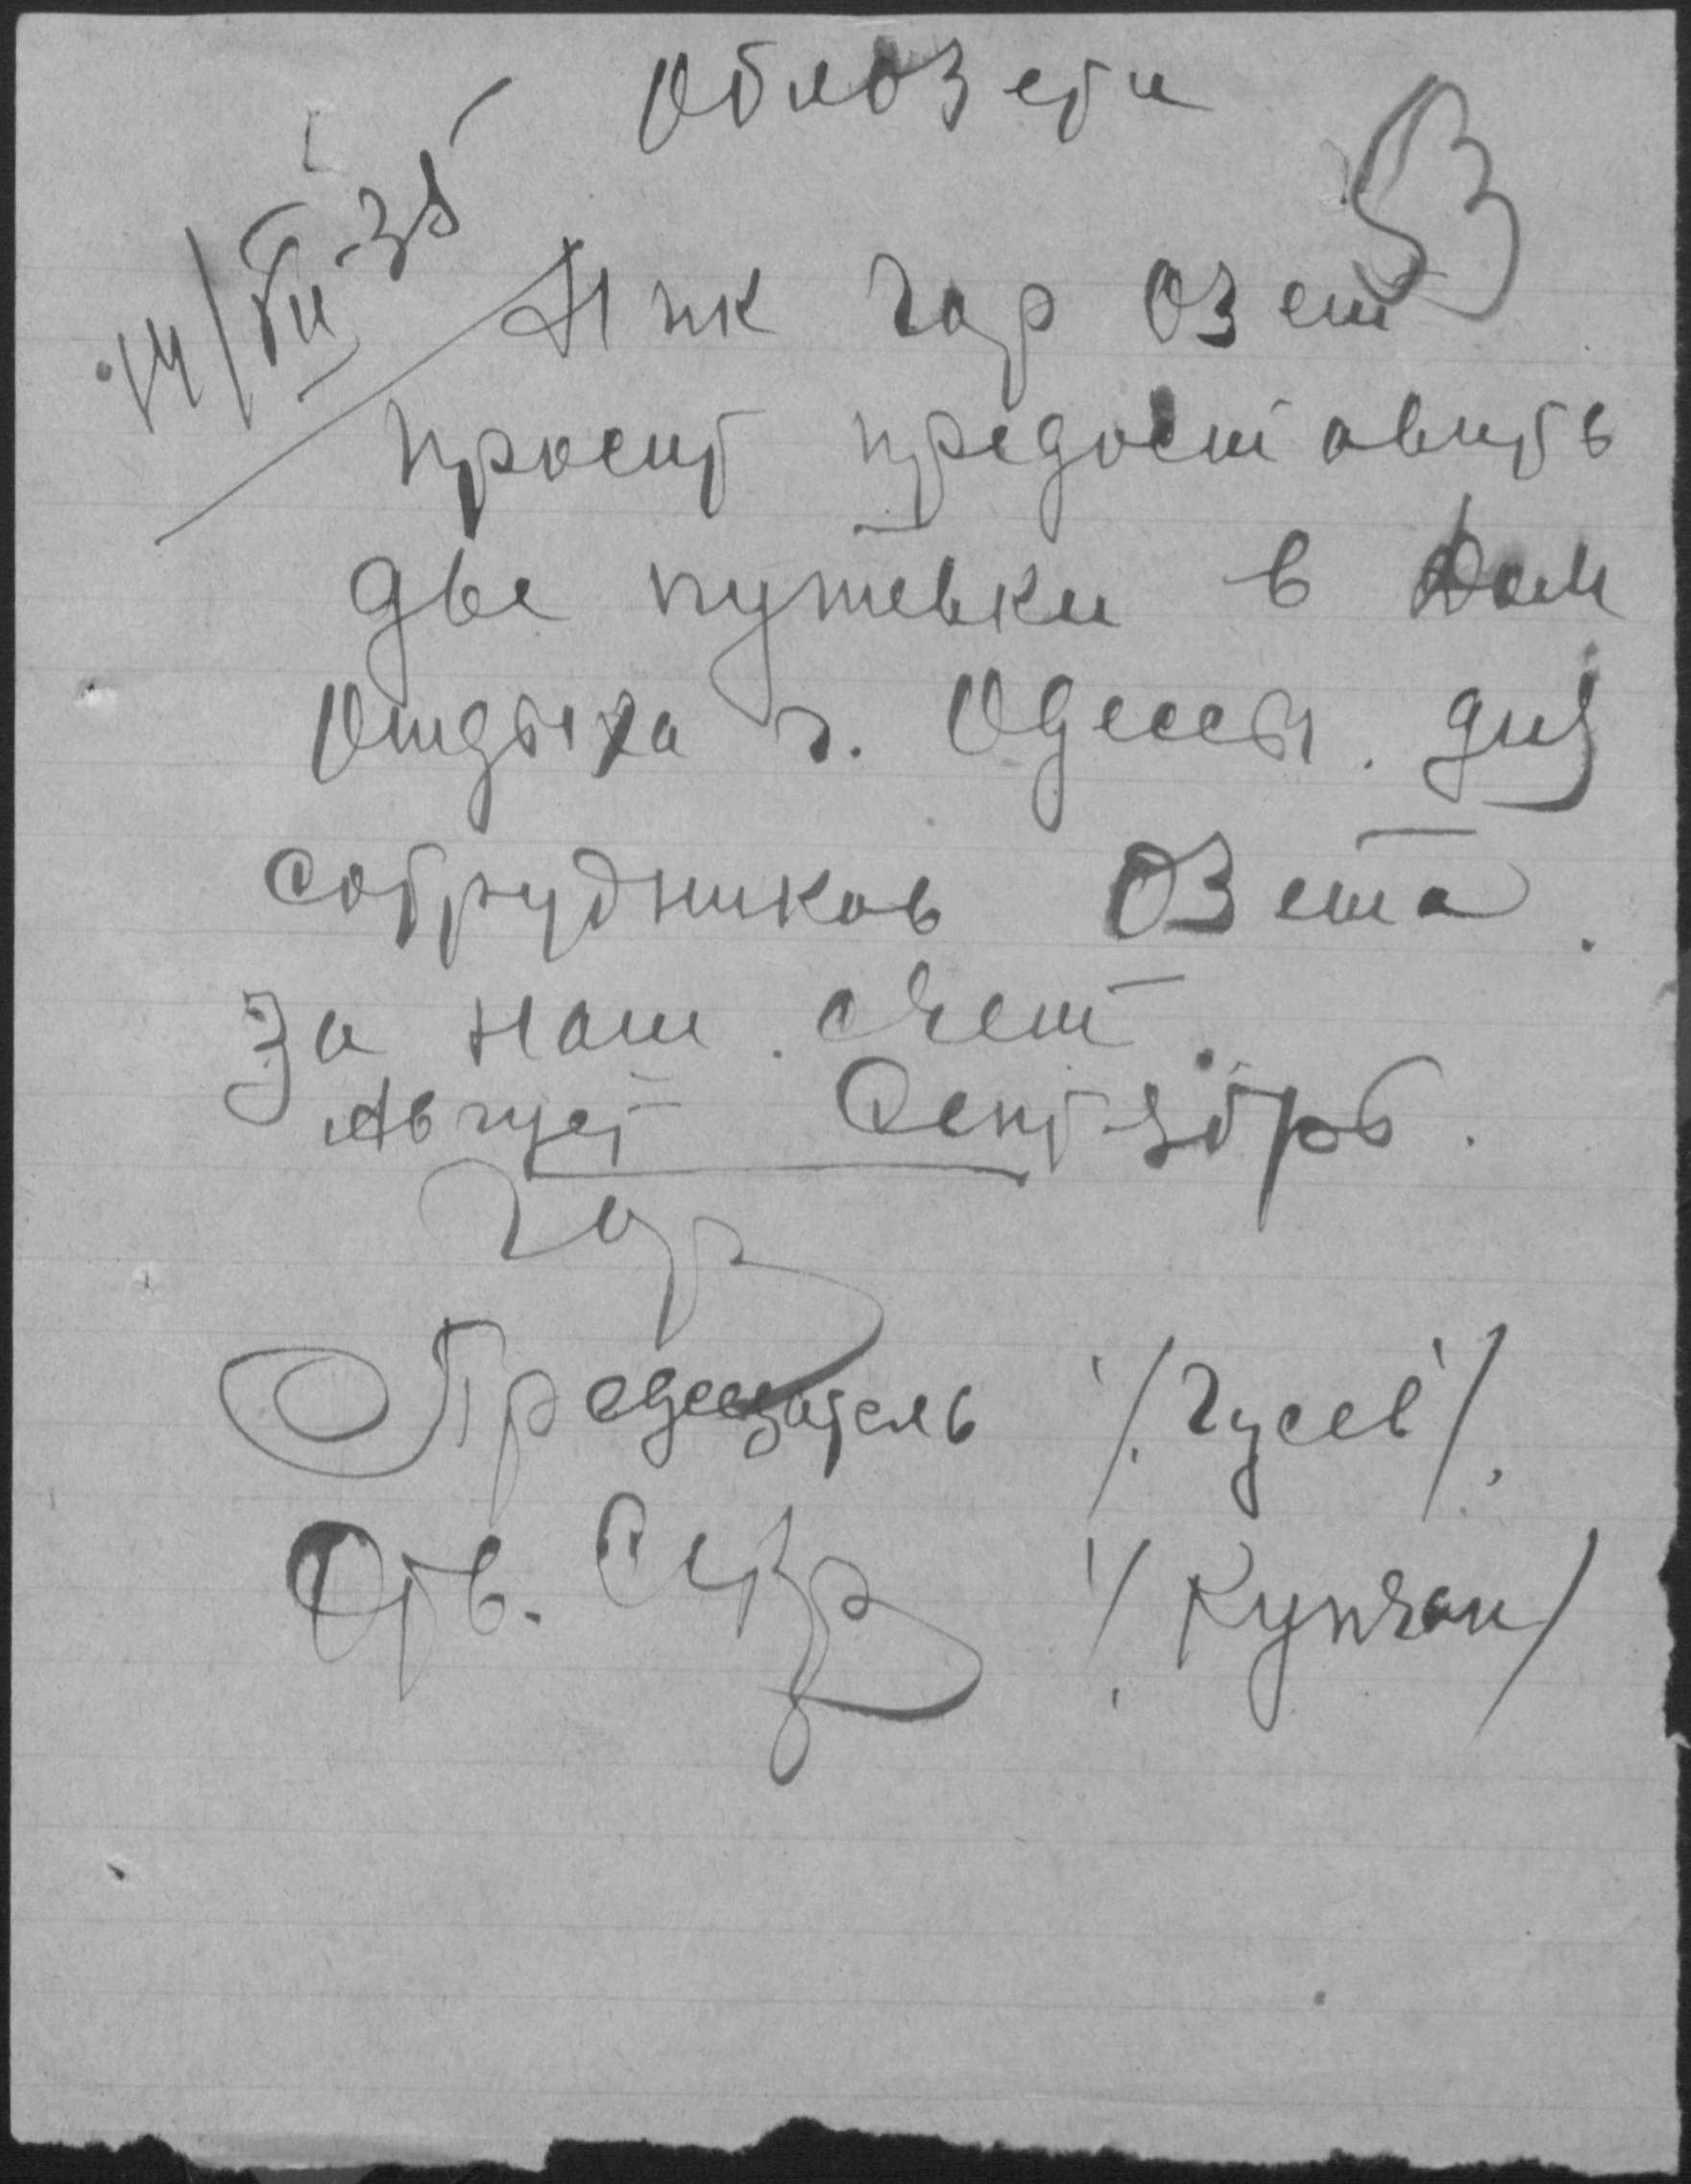 Облозети
53
14/VII-35
Н пк гор Озет
просит предоставить
две путевки в Дом
Отдыха г. Одессы. для
сотрудников Озета.
За наш счет.
Август Сентябрь.
Гор
Председатель /Гусев/
Отв. Секр /Купчан/